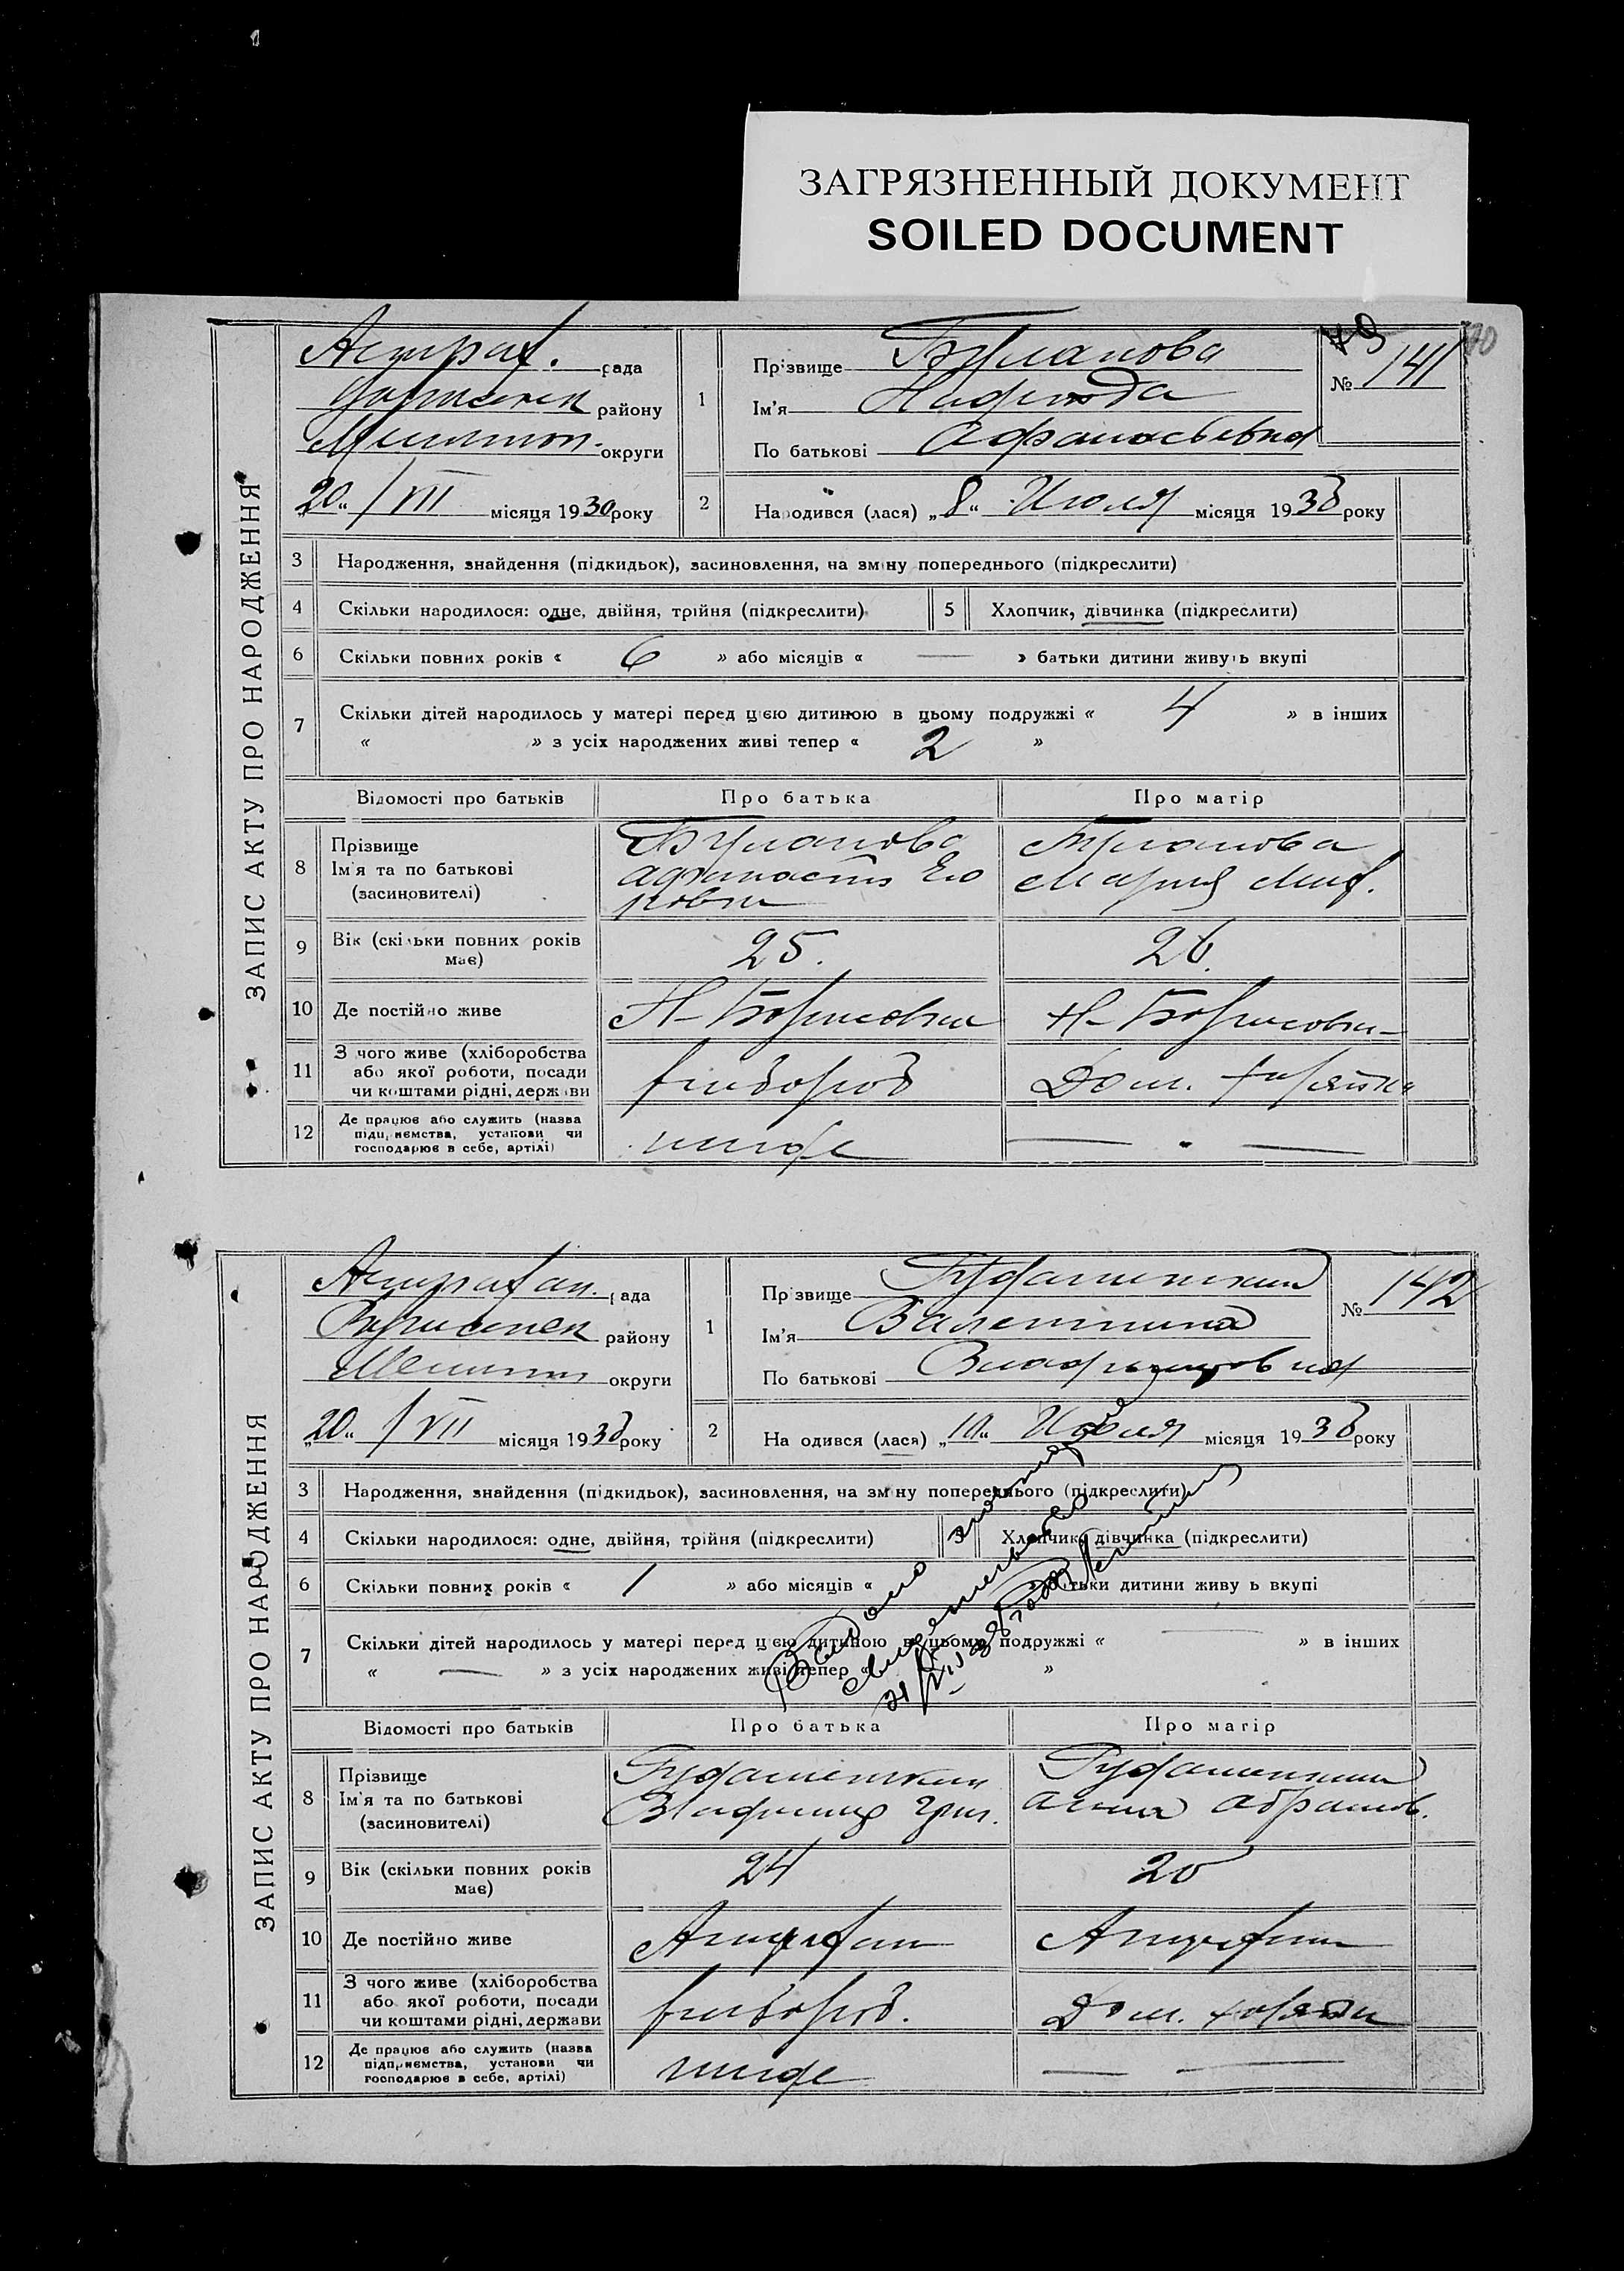 ЗАГРЯЗНЕННЫЙ ДОКУМЕНТ
SOILED DOCUMENT
70
ЗАПИС АКТУ ПРО НАРОДЖЕННЯ
Астрах. рада
району
Мелитоп. округи
„20“ / VII місяця 1930 року
1 Прізвище Буланова
Ім'я Надежда
По батькові Афанасьевна
№ 141
2 Народився (лася) „8“ Июля місяця 1930 року
3 Народження, знайдення (підкидьок), засиновлення, на зміну попереднього (підкреслити)
4 Скільки народилося: одне, двійня, трійня (підкреслити) 5 Хлопчик, дівчинка (підкреслити)
6 Скільки повних років « 6 » або місяців « — » батьки дитини живуть вкупі
7 Скільки дітей народилось у матері перед цією дитиною в цьому подружжі « 4 » в інших
« » з усіх народжених живі тепер « 2 »
Відомості про батьків Про батька Про матір
8 Прізвище
Ім'я та по батькові
(засиновителі)
Буланова
Буланова
Мария
9 Вік (скільки повних років має) 25. 26.
10 Де постійно живе Н-Борисовка Н-Борисовка
11 З чого живе (хліборобства
або якої роботи, посади
чи коштами рідні, держави
хлебороб Дом.
12 Де працює або служить (назва
підприємства, установи чи
господарює в себе, артілі)
— " —
ЗАПИС АКТУ ПРО НАРОДЖЕННЯ
Астрахан. рада
району
округи
„20“ / VII місяця 1930 року
1 Прізвище
Ім'я Валентина
По батькові Владимировна
№ 142
2 Народився (лася) „10“ Июля місяця 1930 року
3 Народження, знайдення (підкидьок), засиновлення, на зміну попереднього (підкреслити)
4 Скільки народилося: одне, двійня, трійня (підкреслити) 5 Хлопчик, дівчинка (підкреслити)
6 Скільки повних років « 1 » або місяців « » батьки дитини живуть вкупі
7 Скільки дітей народилось у матері перед цією дитиною в цьому подружжі « — » в інших
« — » з усіх народжених живі тепер « »
Відомості про батьків Про батька Про матір
8 Прізвище
Ім'я та по батькові
(засиновителі)
Владимир Григ.
Анна Абрамов.
9 Вік (скільки повних років має) 24 20
10 Де постійно живе Астрахан Астрахан
11 З чого живе (хліборобства
або якої роботи, посади
чи коштами рідні, держави
хлебороб. Дом.
12 Де працює або служить (назва
підприємства, установи чи
господарює в себе, артілі)
— —